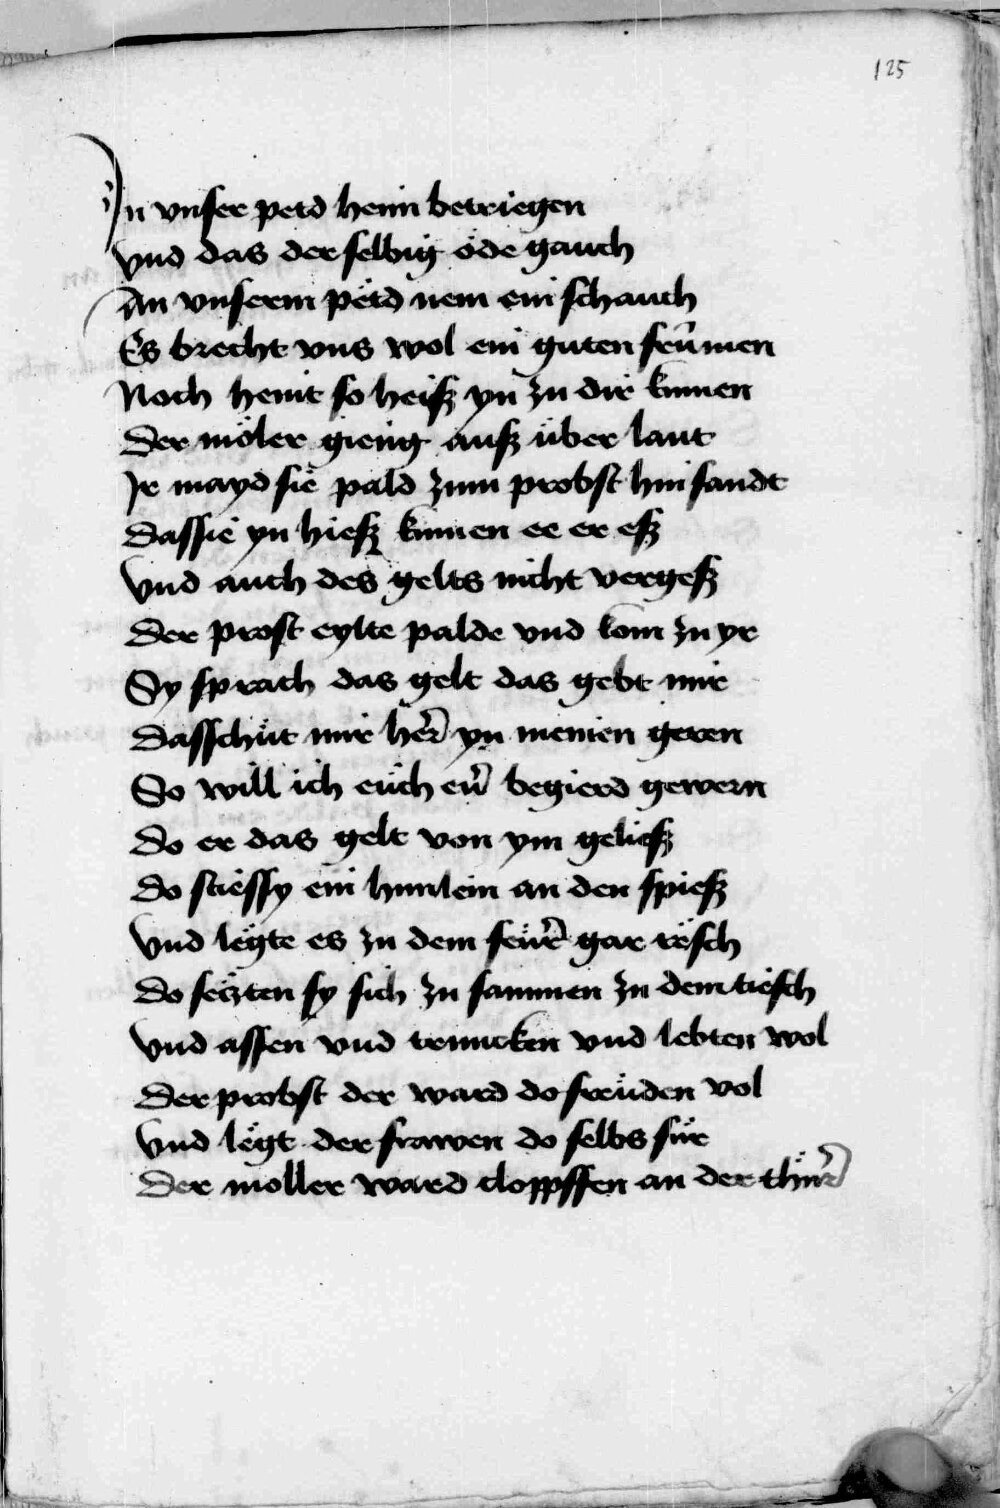 125
In vnser petd hein betriegen
vnd das der selbig öde gauch
An vnserm petd nem ein schauch
Es brecht vns wol ein guten frümen
Noch heint so heiſz yn zu dir kumen
Der möler gieng auſz über laut
Ir mayd sie pald zum probst hin sandt
Das sie yn hieſz kumen ee er eſz
vnd auch des gelts nicht vergeſz
Der prost eylte palde vnd kom zu yr
Sy sprach das gelt das gebt mir
Das schüt mir her yn meinen geren
So will ich euch eur begierd gewern
Do er das gelt von ym gelieſz
Do stiessy ein hunlein an den spieſz
vnd legte es zu dem feur gar rösch
Do seczten sy sich zu sammen zu dem tiesch
vnd assen vnd truncken vnd lebten wol
Der probst der ward do freuden vol
vnd legt der frawen do selbs für
Der moller ward cloppffen an der thür